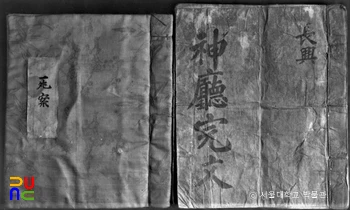 長興
神廳完文
案
서울대학교 박물관